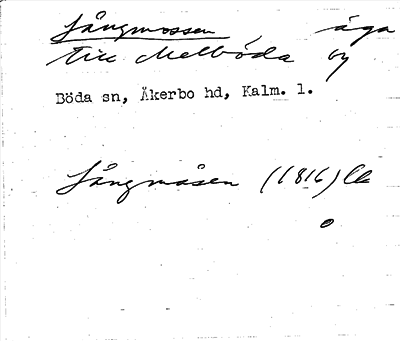 Långmossen, äga
till Melböda by
Böda sn, Åkerbo hd, Kalm. l.
Långmåsen (1816)